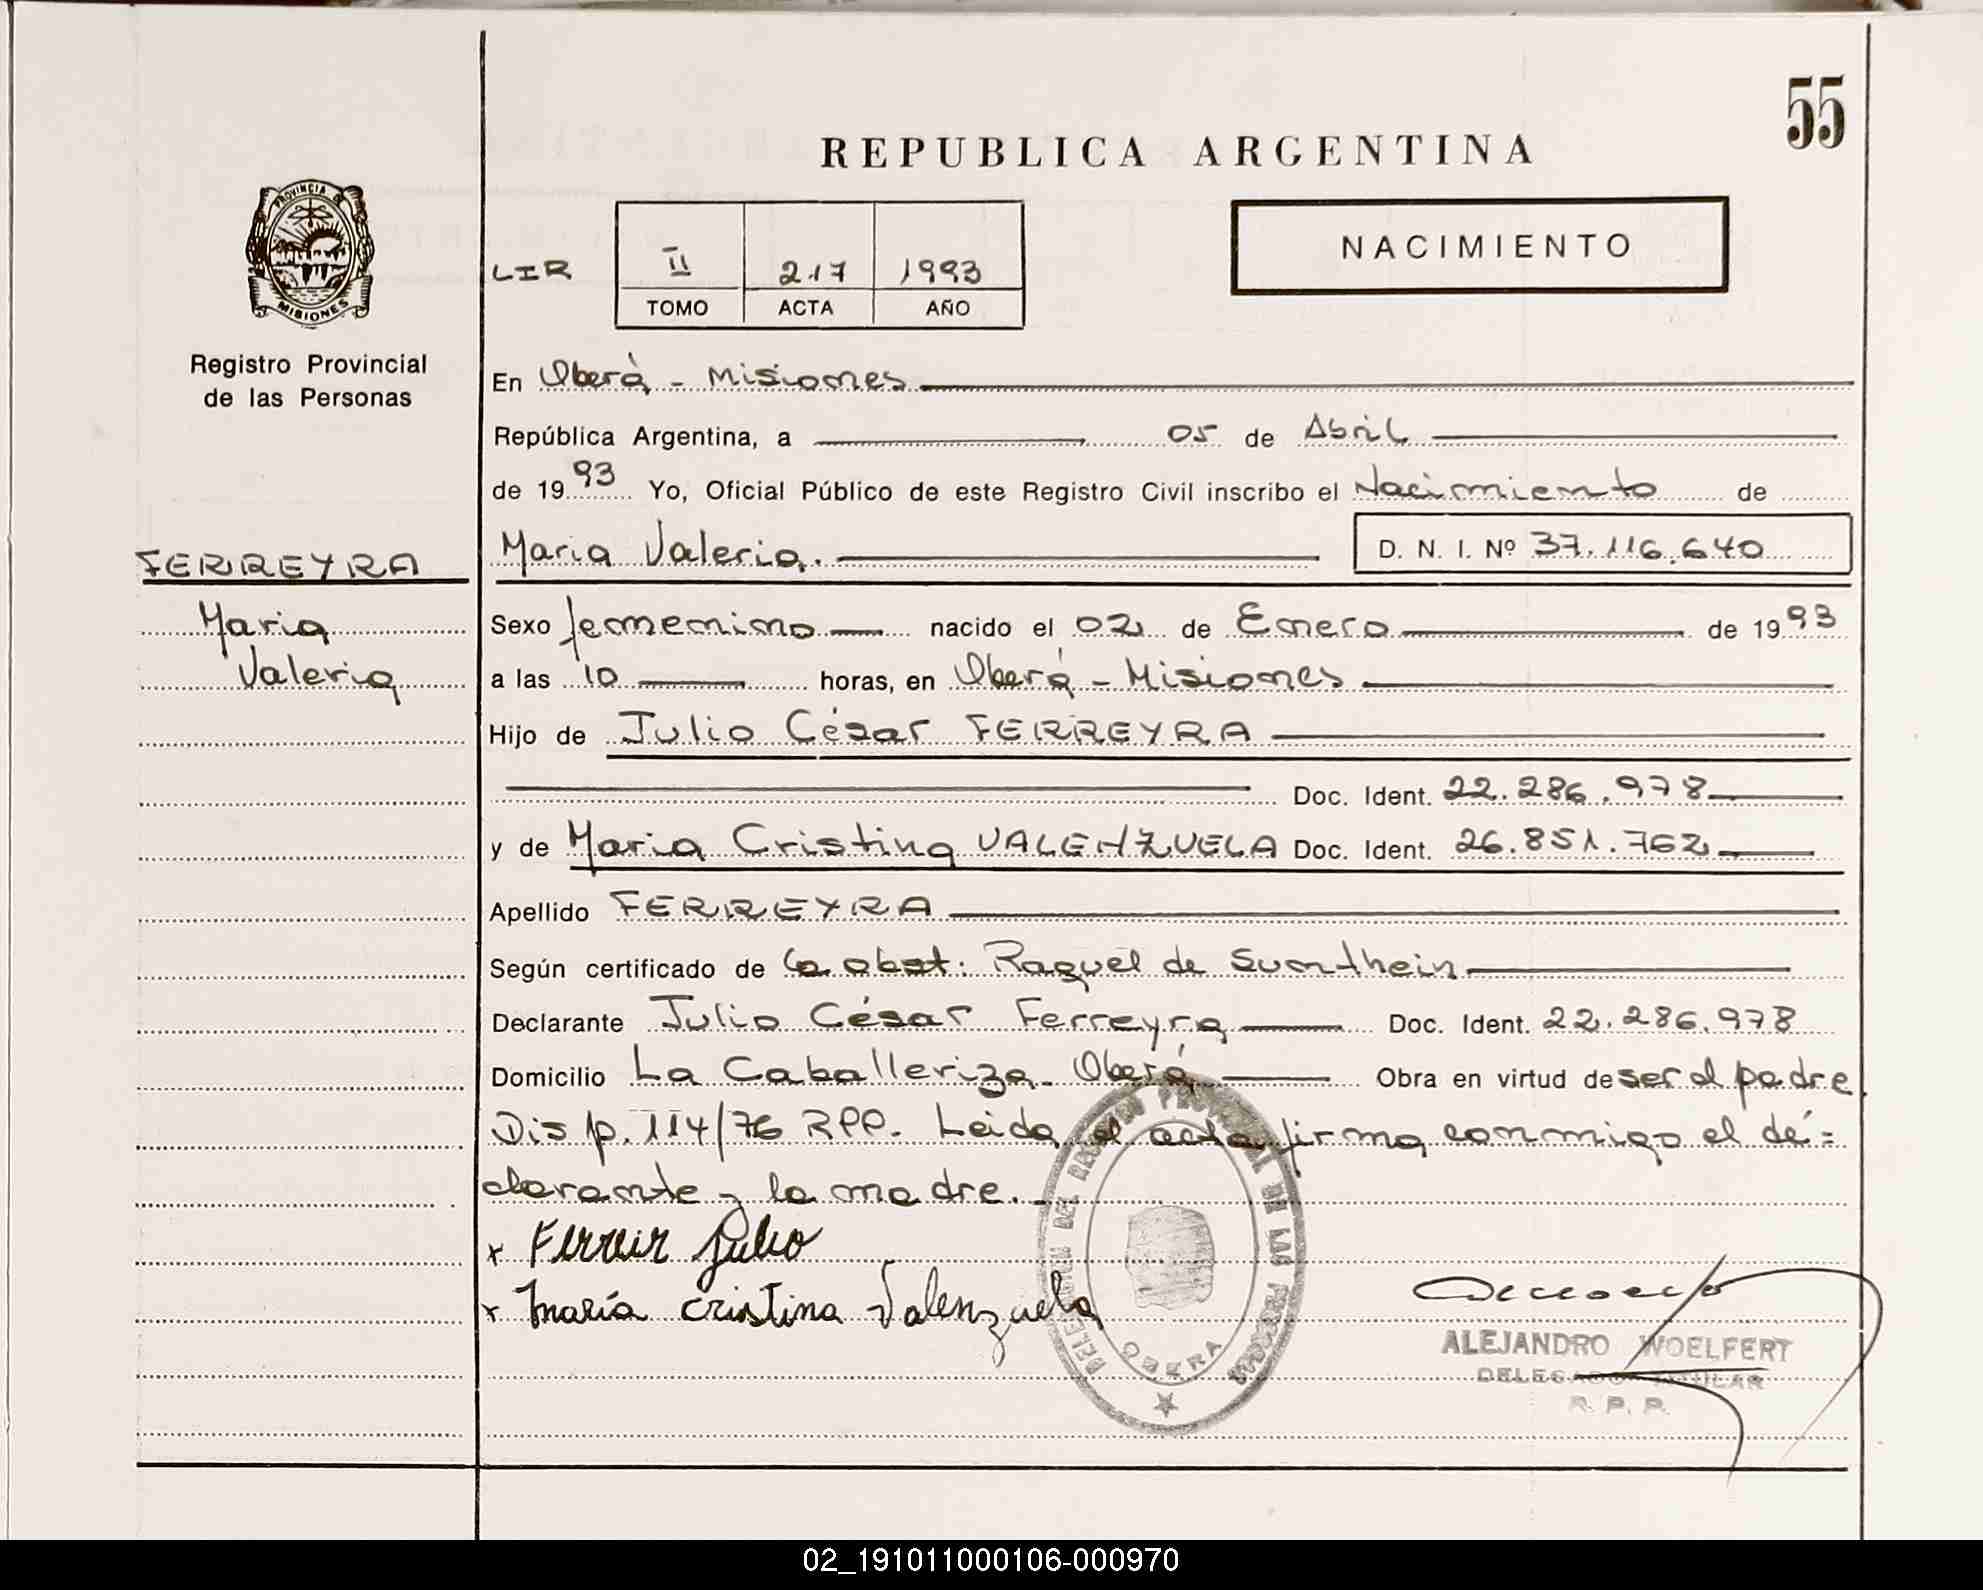 55
REPUBLICA ARGENTINA
PROVINCIA DE
MISIONES
LIR
II 217 1993
TOMO ACTA AÑO
NACIMIENTO
Registro Provincial
de las Personas
FERREYRA
Maria
Valeria
En Oberá - Misiones
República Argentina, a 05 de Abril
de 1993 Yo, Oficial Público de este Registro Civil inscribo el Nacimiento de
Maria Valeria. D. N. I. Nº 37.116.640
Sexo femenino nacido el 02 de Enero de 1993
a las 10 horas, en Oberá - Misiones
Hijo de Julio César FERREYRA
Doc. Ident. 22.286.978
y de Maria Cristina VALENZUELA Doc. Ident. 26.851.762
Apellido FERREYRA
Según certificado de la obst. Raquel de
Declarante Julio César Ferreyra Doc. Ident. 22.286.978
Domicilio La Caballeriza - Oberá Obra en virtud de ser el padre
Disp. 114/76 RPP. Leida el acta firma conmigo el de=
clarante y la madre.
x Julio
x María Cristina Valenzuela
DELEGACION DEL REGISTRO PROVINCIAL DE LAS PERSONAS
OBERA
ALEJANDRO WOELFERT
DELEGADO TITULAR
R. P. P.
02_191011000106-000970